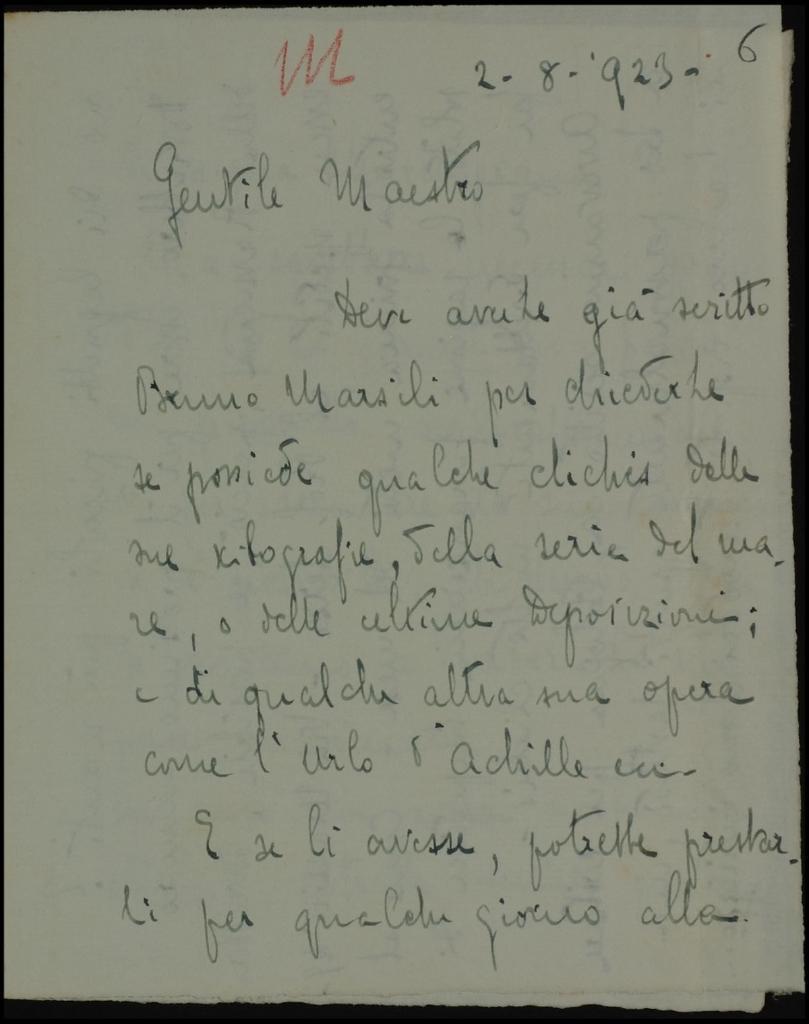 M
2-8-'923-
6
Gentile Maestro
Deve averle già scritto
Bruno Marsili per chiederle
se possiede qualche clichés delle
sue xilografie, della serie del ma-
re, o delle ultime Deposizioni;
e di qualche altra sua opera
come l'Urlo d'Achille ecc-
E se li avesse, potrebbe prestar-
li per qualche giorno alla